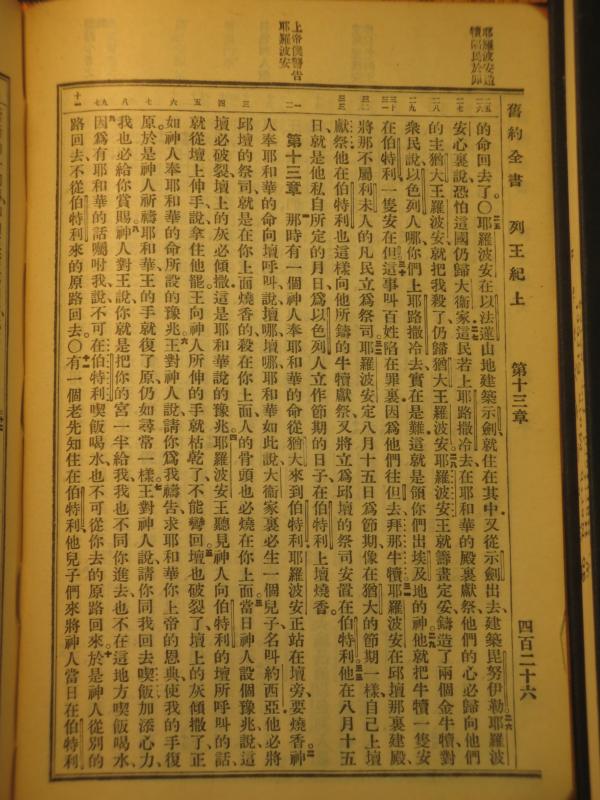 舊約全書 列王紀上 第十三章 四百二十六
耶羅波安造
犢陷民於
的命回去了〇耶羅波安在以法蓮山地建築示劍就住在其中又從示劍出去建築毘努伊勒耶羅波
安心裏說恐怕這國仍歸大衛家這民若上耶路撒冷去在耶和華的殿裏獻祭他們的心必歸向他們
的主猶大王羅波安就把我殺了仍歸猶大王羅波安耶羅波安王就籌畫定妥鑄造了兩個金牛犢對
衆民說以色列人哪你們上耶路撒冷去實在是難這就是領你們出埃及地的神他就把牛犢一隻安
在伯特利一隻安在但這事叫百姓陷在罪裏因爲他們往但去拜那牛犢耶羅波安在邱壇那裏建殿
將那不屬利未人的凡民立爲祭司耶羅波安定八月十五日爲節期像在猶大的節期一樣自己上壇
獻祭他在伯特利也這樣向他所鑄的牛犢獻祭又將立爲邱壇的祭司安置在伯特利他在八月十五
日就是他私自所定的月日爲以色列人立作節期的日子在伯特利上壇燒香
上帝僕警告
耶羅波安
第十三章 那時有一個神人奉耶和華的命從猶大來到伯特利耶羅波安正站在壇旁要燒香神
人奉耶和華的命向壇呼叫說壇哪壇哪耶和華如此說大衛家裏必生一個兒子名叫約西亞他必將
邱壇的祭司就是在你上面燒香的殺在你上面人的骨頭也必燒在你上面當日神人設個豫兆說這
壇必破裂壇上的灰必傾撒這是耶和華說的豫兆耶羅波安王聽見神人向伯特利的壇所呼叫的話
就從壇上伸手說拿住他罷王向神人所伸的手就枯乾了不能彎回壇也破裂了壇上的灰傾撒了正
如神人奉耶和華的命所設的豫兆王對神人說請你爲我禱告求耶和華你上帝的恩典使我的手復
原於是神人祈禱耶和華王的手就復了原仍如尋常一樣王對神人說請你同我回去喫飯加添心力
我也必給你賞賜神人對王說你就是把你的宮一半給我我也不同你進去也不在這地方喫飯喝水
因爲有耶和華的話囑咐我說不可在伯特利喫飯喝水也不可從你去的原路回來於是神人從別的
路回去不從伯特利來的原路回去〇有一個老先知住在伯特利他兒子們來將神人當日在伯特利